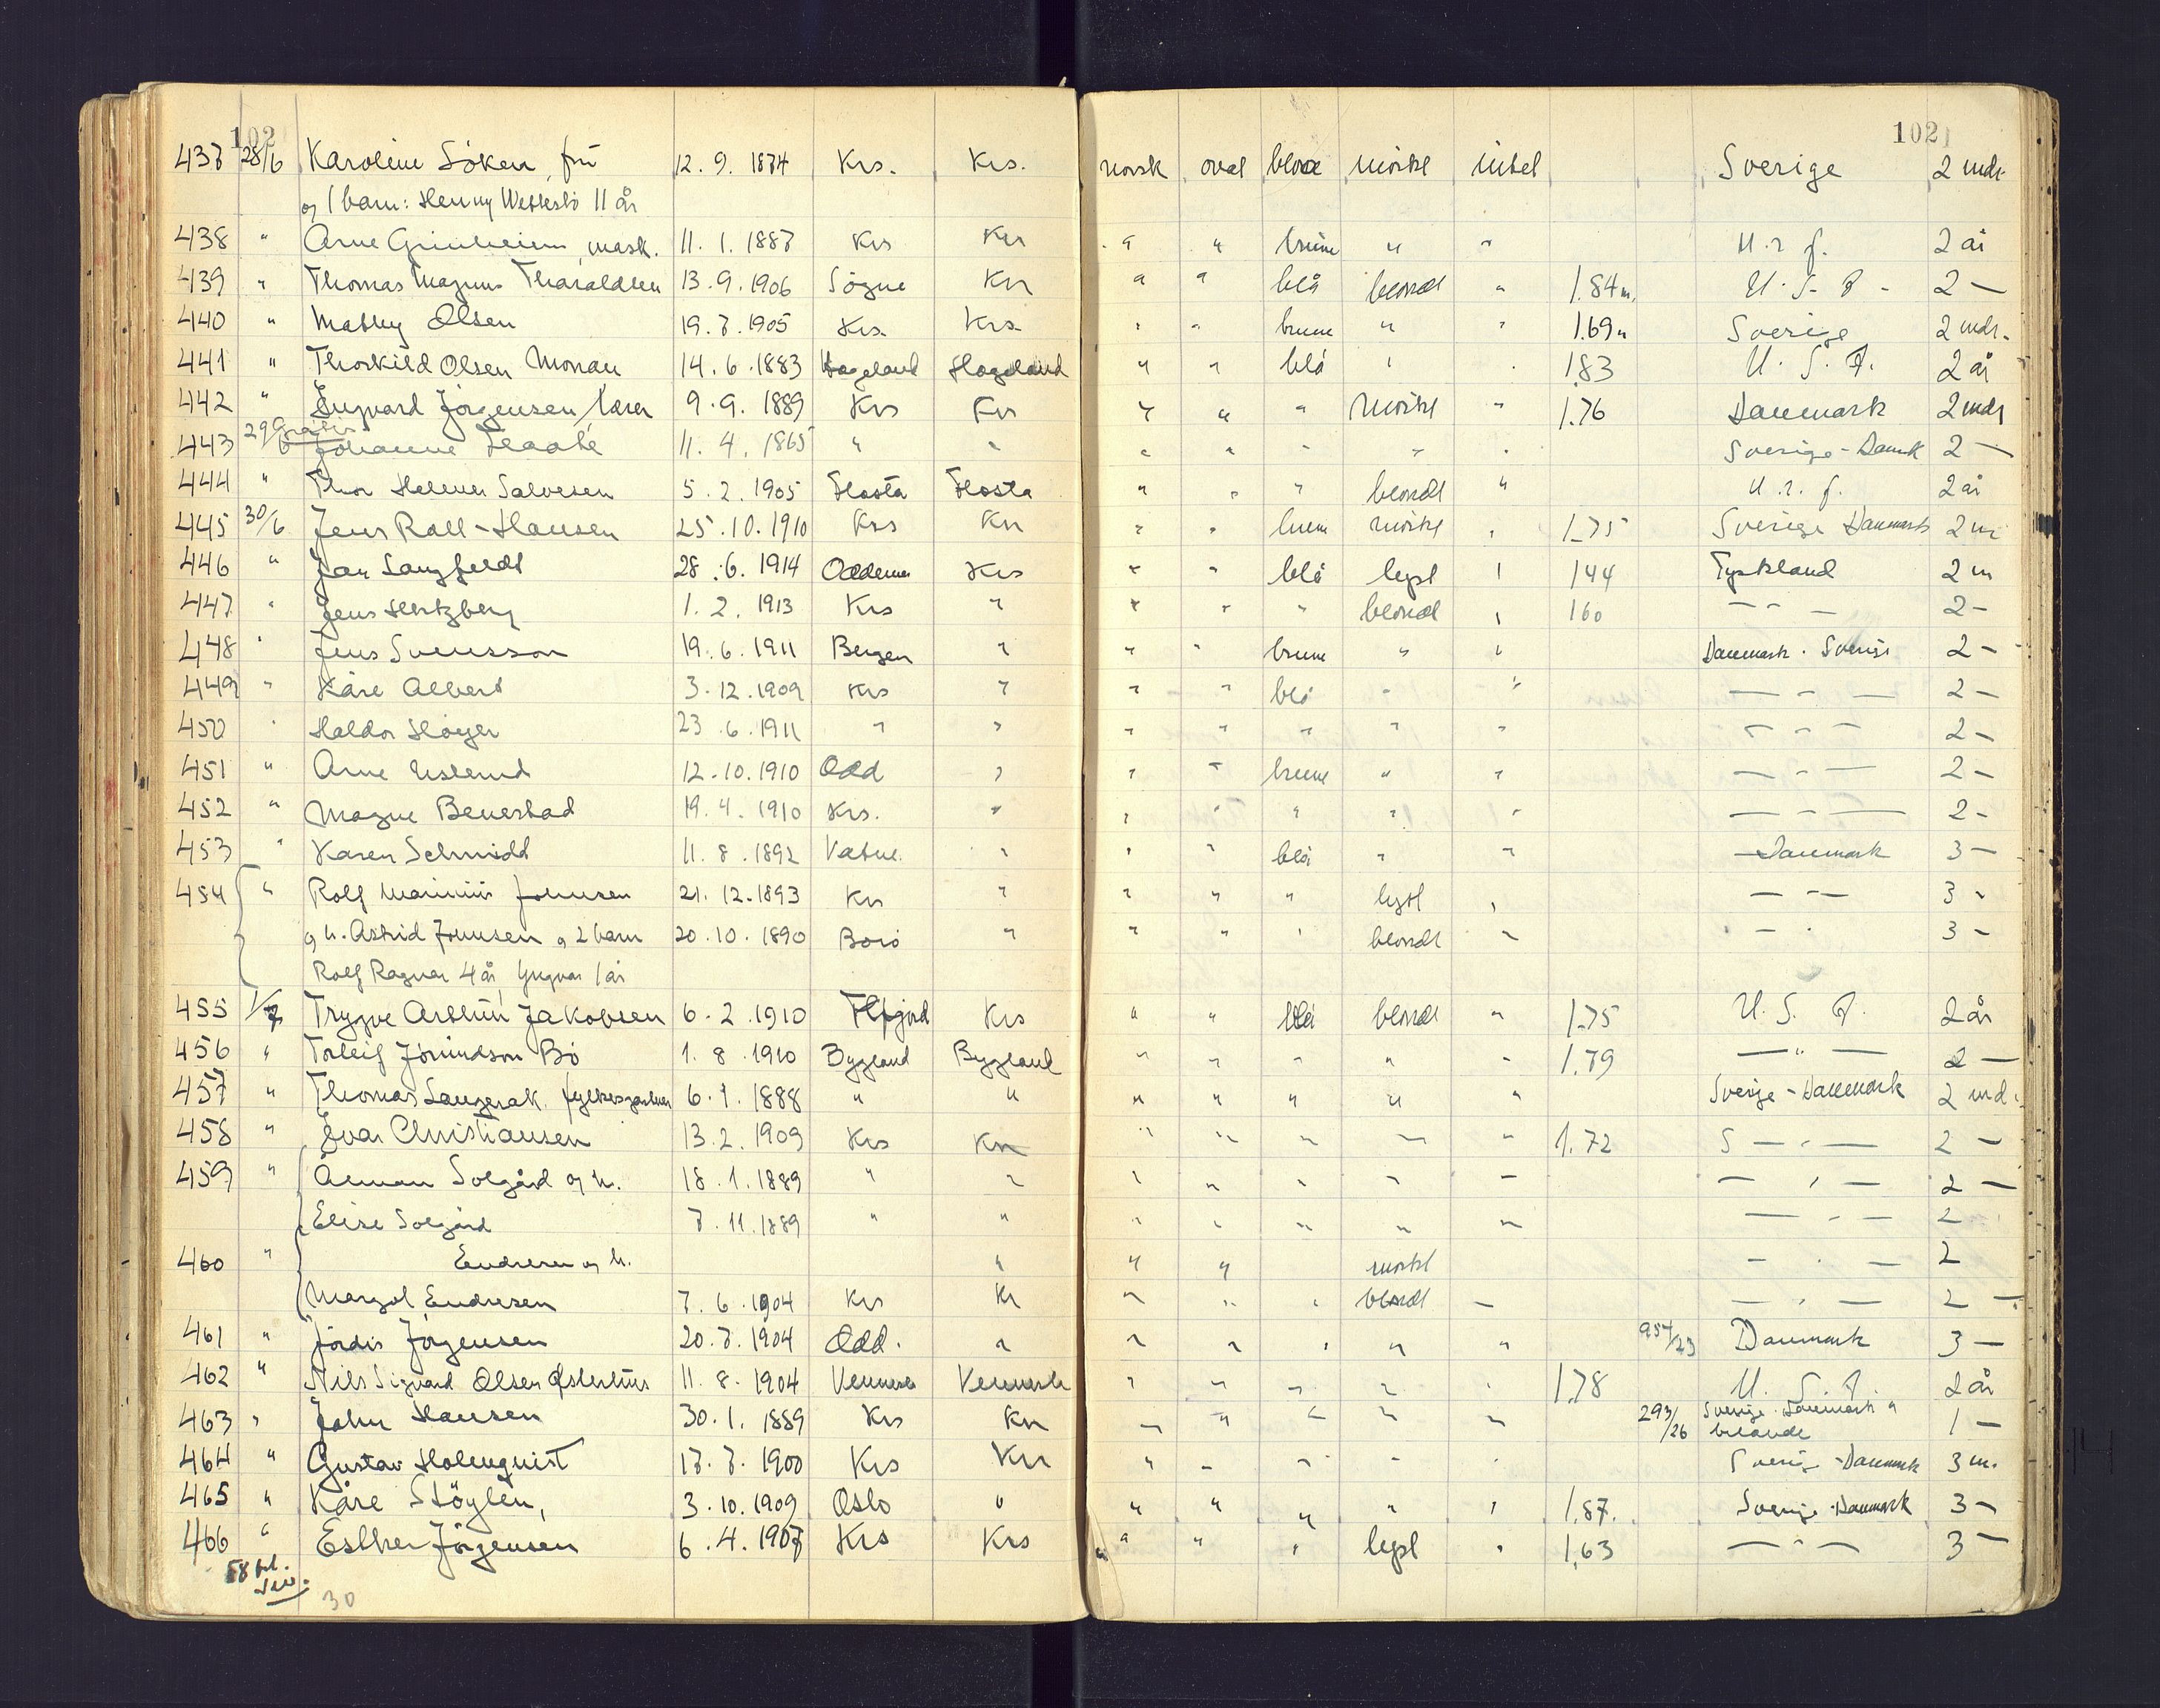 102 102
437 28/6 Karoline Söken, frú 12. 9. 1874 Krs. Krs. norsk oval blaa mörkt intet Sverige 2 mdr
og 1 barn: Henny 11 år
438 " Arne Grimheim, mask. 11. 1. 1887 Krs Krs " " brune " " U. S. A. 2 år
439 " Thomas Magnus Tharaldsen 13. 9. 1906 Sögne Krs " " blå blondt " 1.84 m. U. S. A. 2 —
440 " Olsen 19. 7. 1905 Krs. Krs. " " brune " " 1.69 " Sverige 2 mdr.
441 " Thorkild Olsen Monan 14. 6. 1883 Hægeland Hægeland " " blå " " 1.83 U. S. A. 2 år
442 " Ingvard Jörgensen, lærer 9. 9. 1889 Krs Krs " " " mörkt " 1.76 Danmark 2 mdr
443 29/6 Gratis Johanne 11. 4. 1865 " " " " " " " Sverige - Danmk 2 —
444 " Thor Helmer Salvesen 5. 2. 1905 Flosta Flosta " " " blondt " U. S. A. 2 år
445 30/6 Jens Roll-Hansen 25. 10. 1910 Krs Krs " " brune mörkt " 1.75 Sverige Danmark 2 m
446 " Jan Langfeldt 28. 6. 1914 Oddernes Krs " " blå lyst " 144 Tyskland 2 m
447 " Jens Hertzberg 1. 2. 1913 Krs " " " " blondt " 160 — " — 2 —
448 " Jens Svensson 19. 6. 1911 Bergen " " " brune " " Danmark. Sverige 2 —
449 " Kåre Albert 3. 12. 1909 Krs " " " blå " " — " — 2 —
450 " Haldor Höyer 23. 6. 1911 " " " " " " " — " — 2 —
451 " Arne Usterud 12. 10. 1910 Odd " " " brune " " — " — 2 —
452 " Magne Benestad 19. 4. 1910 Krs. " " " " " " — " — 2 —
453 " Karen Schmidt 11. 8. 1892 Vatne " " " blå " " Danmark 3 —
454 " Rolf Johnsen 21. 12. 1893 Krs " " " " lyst " — " — 3 "
og h. Astrid Johnsen og 2 barn 20. 10. 1890 " " " " blondt " — " 3 —
Rolf Ragnar 4 år, Yngvar 1 år
455 1/7 Trygve Arthur Jakobsen 6. 2. 1910 Krs " " blå blondt " 1.75 U. S. A. 2 år
456 " Torleif Jörundson Bö 1. 8. 1910 Bygland Bygland " " " " " 1.79 — " — 2 —
457 " Thomas Langerak, fylkesgartner 6. 1. 1888 " " " " " " " Sverige - Danmark 2 md.
458 " Ivar Christiansen 13. 2. 1909 Krs Krs " " " " " 1.72 S — " — 2 —
459 " Åsmon Solgård og h. 18. 1. 1889 " " " " " " " — " — 2 —
Elise Solgård 7. 11. 1889 " " " " " " " — " — 2
460 " Endresen og h. " " " mörkt — " — 2
Margot Endresen 7. 6. 1904 Krs Kr " " " blondt — — " — 2 —
461 " Jördis Jörgensen 20. 7. 1904 Odd. " " " " " " 954/23 Danmark 3 —
462 " Nils Sigvard Olsen Østerhus 11. 8. 1904 Vennesla Vennesla " " " " " 1.78 U. S. A. 2 år
463 " John Hansen 30. 1. 1889 Krs Krs " " " " " 293/26 Sverige. Danmark 1 —
464 " Gustav Holmquist 17. 7. 1900 Krs Krs " " " " " Sverige - Danmark 3 m.
465 " Kåre Stöylen, 3. 10. 1909 Oslo " " " " " " 1.87. Sverige - Danmark 3 —
466 " Esther Jörgensen 6. 4. 1907 Krs Krs " " " lyst " 1.63 — " — 3 —
30